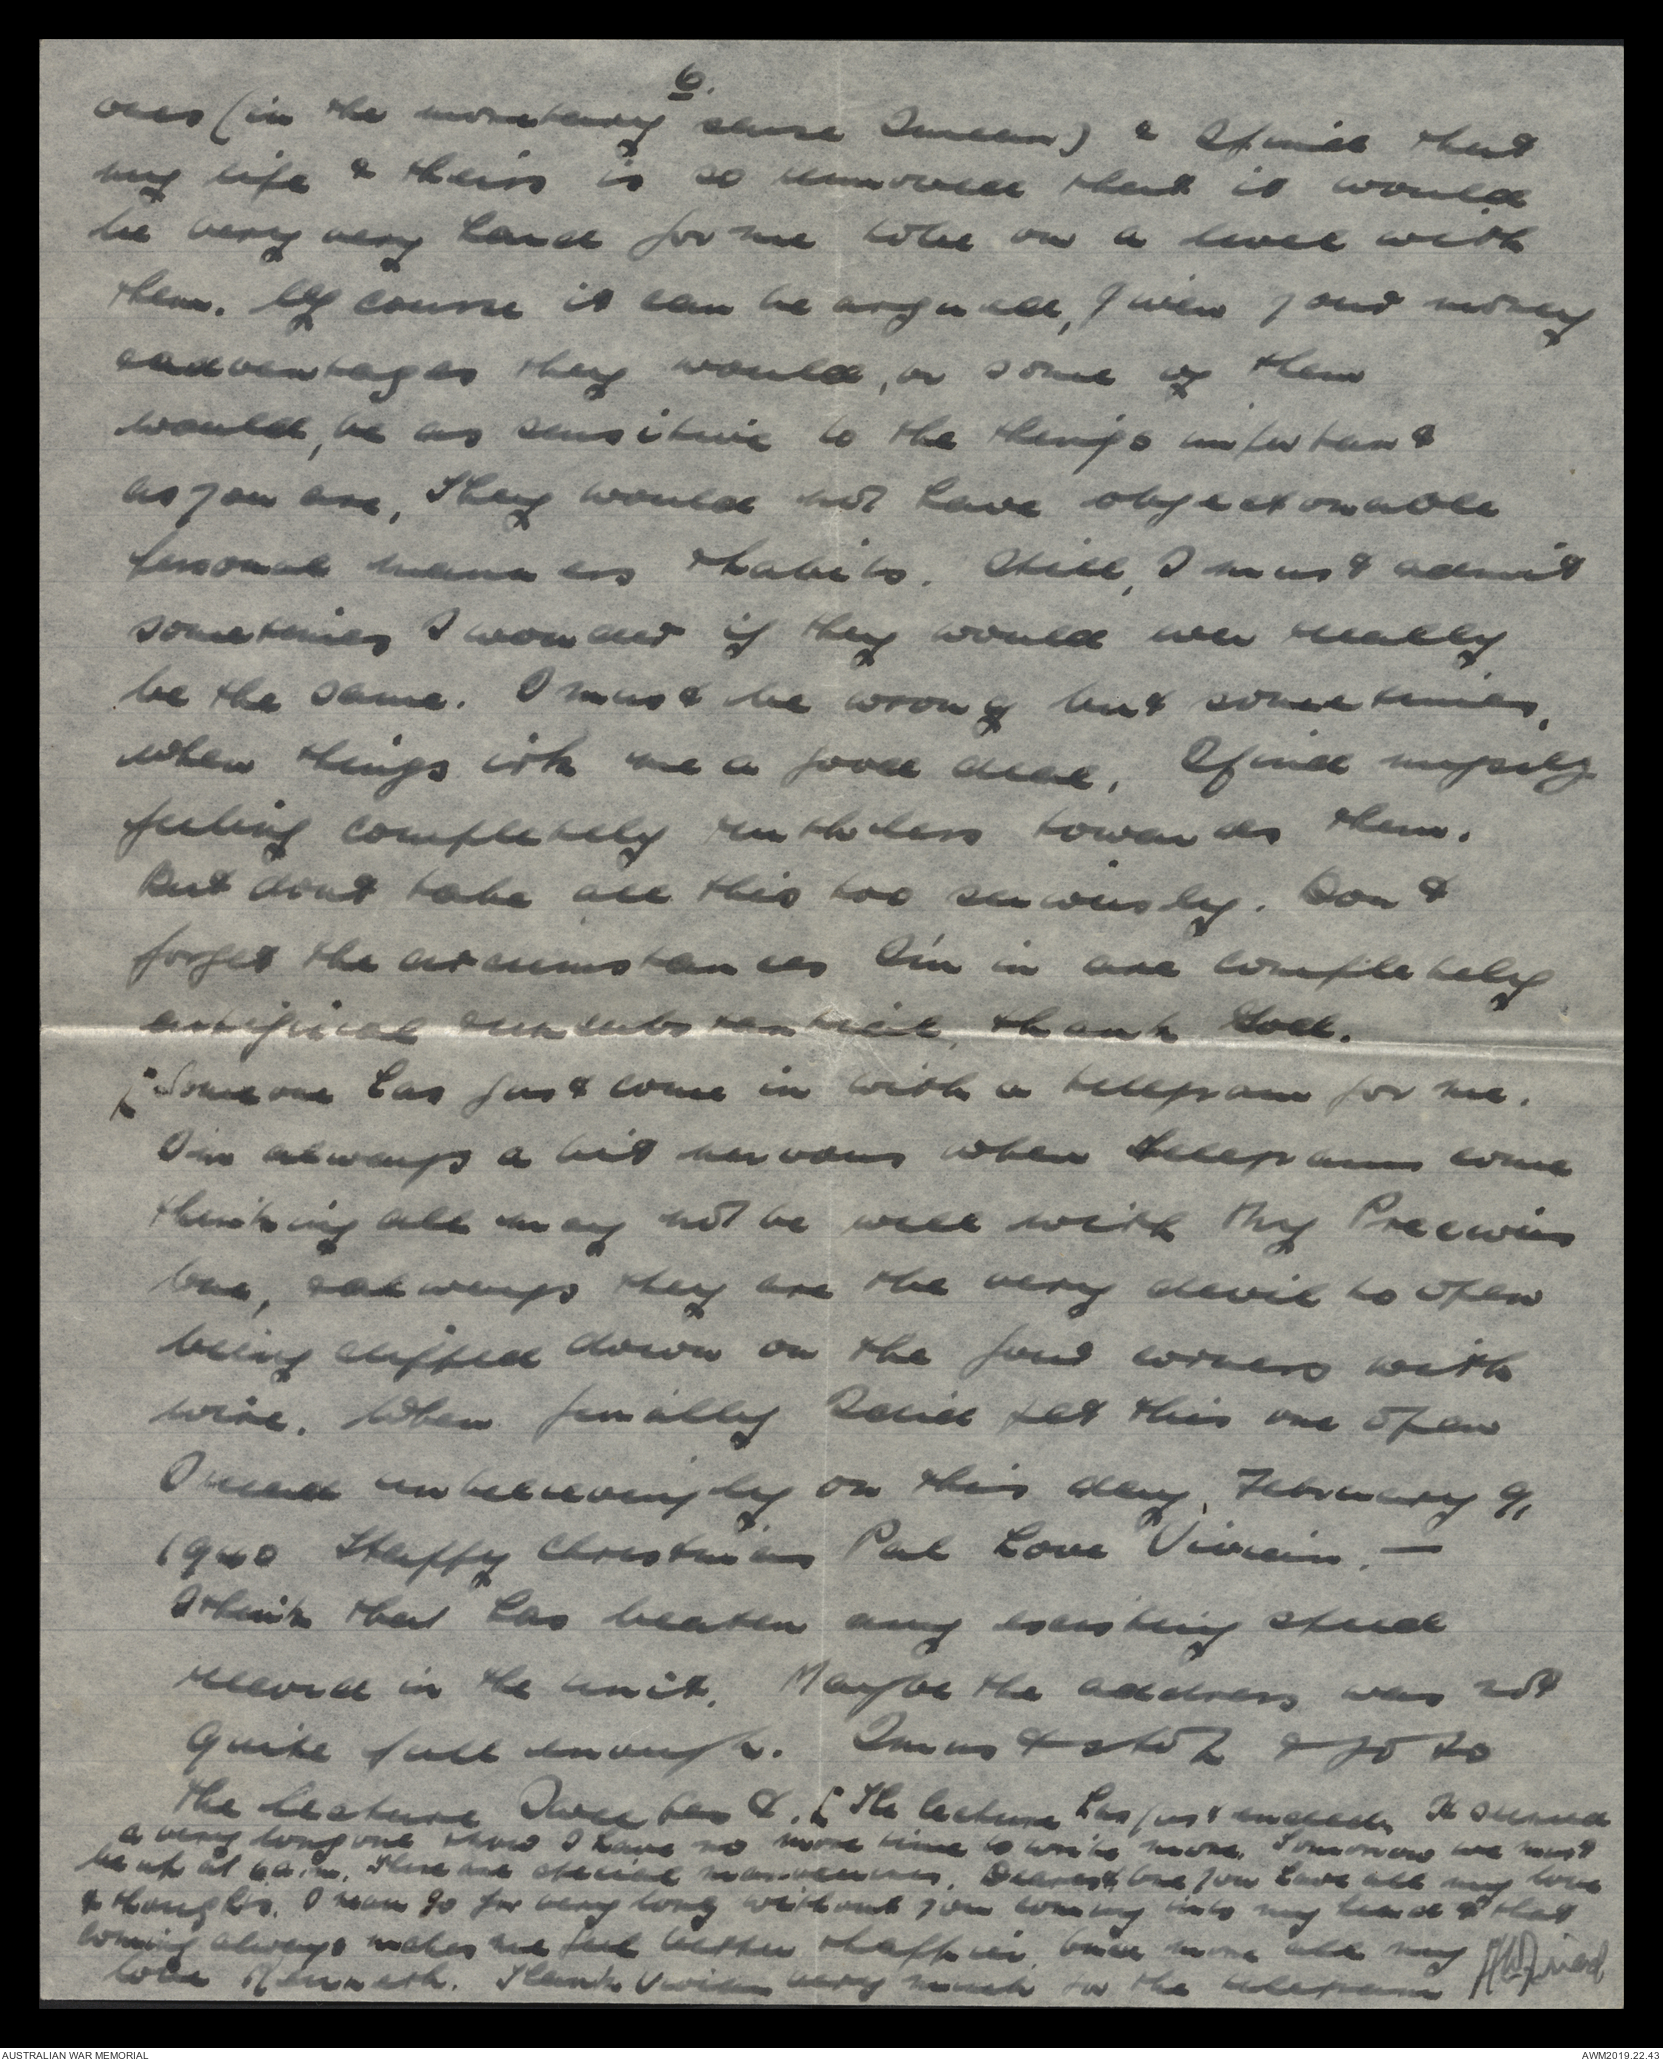 6.
ones (in the monetary sense I mean) & I find that
my life & theirs is so removed that it would
be very very hard for me to be on a level with
them. Of course it can be argued, given your money
& advantages they would, or some of them
would, be as sensitive to the things important
as you are, They would not have objectionable
personal manners & habits. Still, I must admit
sometimes I wonder if they would ever really
be the same. I must be wrong but sometimes,
when things irk me a good deal, I find myself
feeling completely ruthless towards them.
But dont take all this too seriously. Don't
forget the circumstances I'm in are completely
artificial & unsubstantial, thank God.
[Someone has just come in with a telegram for me.
I'm always a bit nervous when telegrams come
thinking all may not be well with My Precious
One, & always they are the very devil to open
being clipped down on the four corners with
wire. When finally I did get this one open
I read unbelievingly on this day, February 9,
1940 Happy Christmas Pal Love Vivian. —
I think that has beaten any existing speed
record in the unit. Maybe the address was not
quite full enough. I must stop & go to
the lecture Sweetest. [The lecture has just ended. It seemed
a very long one & now I have no more time to write more. Tomorrow we must
be up at 6 a.m. There are special manoeuvres. Dearest One you have all my love
& thoughts. I never go for very long without you coming into my head & that
coming always makes me feel better & happier. Once more all my
love Kenneth. Thank Vivian very much for the telegram